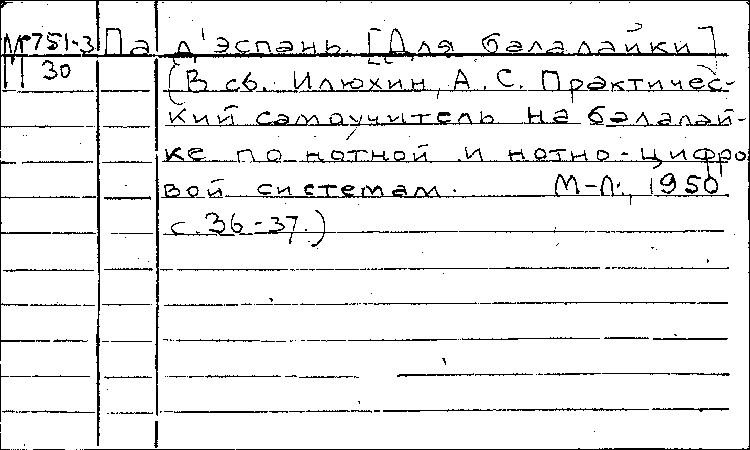 М 751-3 Па д'эспань. [Для балалайки]
П 30 (В сб. Илюхин, А. С. Практичес-
кий самоучитель на балалай-
ке по нотной и нотно-цифро
вой системам. М-Л., 1950.
с. 36-37.)